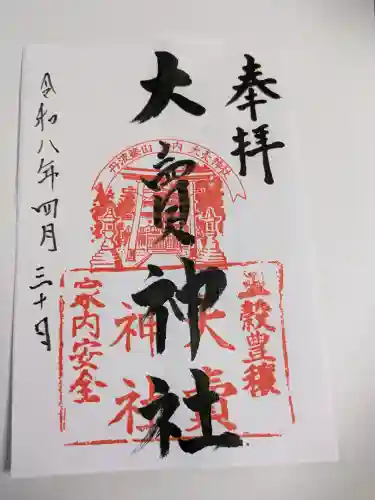 奉拝
大賣神社
令和八年四月三十日
五穀豊穣
大賣
神社
家内安全